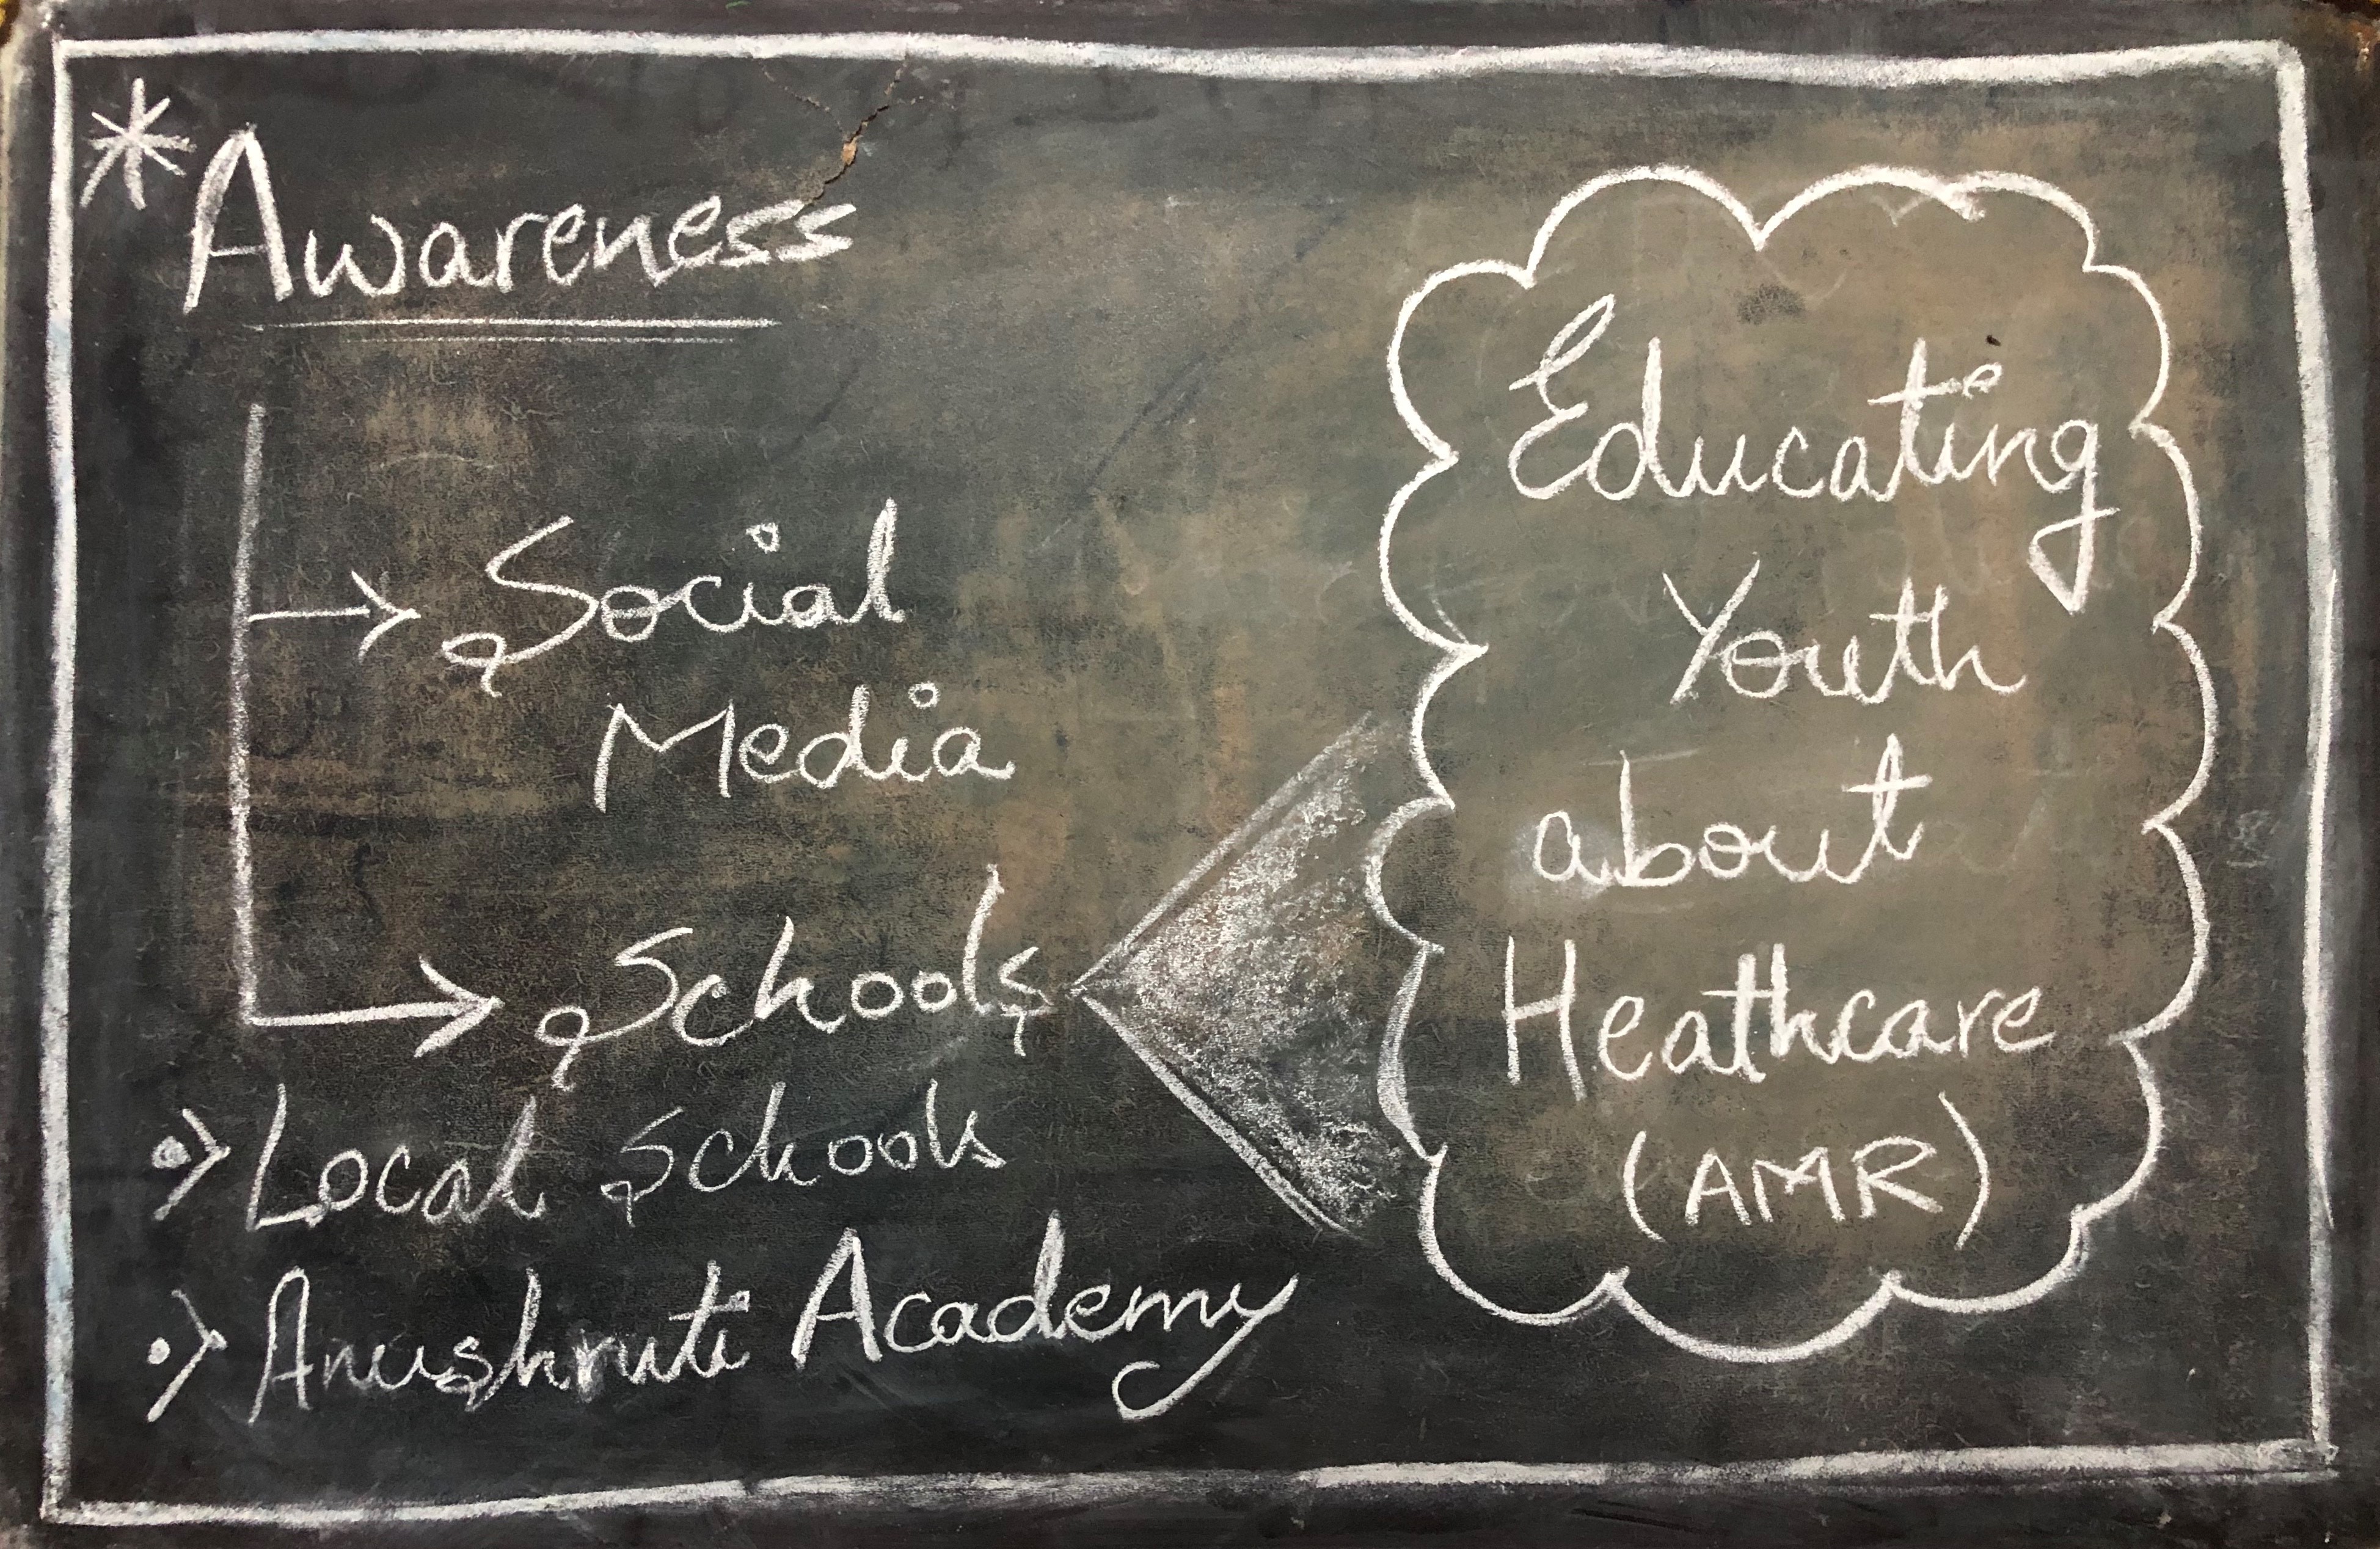 * Awareness
→ Social
Media
→ Schools
•> Local Schools
•> Anushruti Academy
Educating
Youth
about
Heathcare
(AMR)